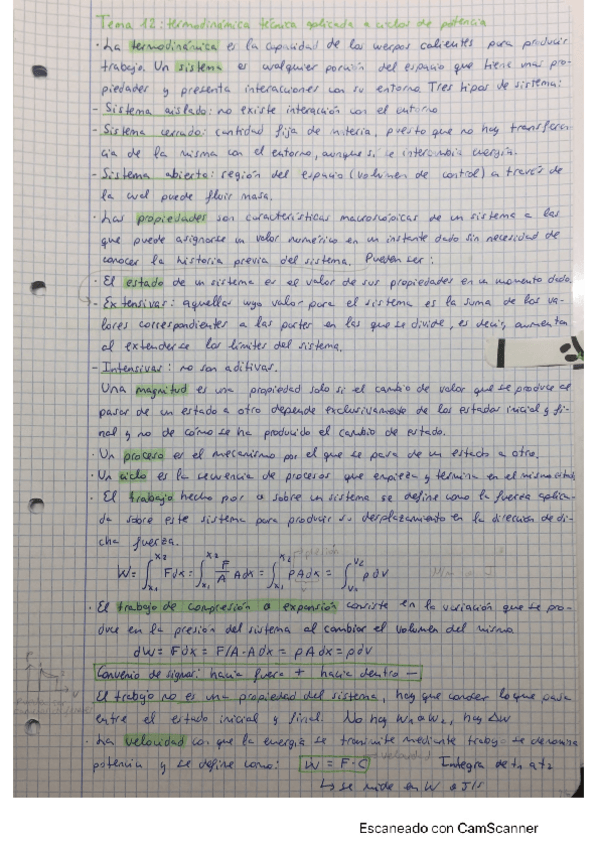 Tema 12: termodinámica técnica aplicada a ciclos de potencia
· La termodinámica es la capacidad de los cuerpos calientes para producir
trabajo. Un sistema es cualquier porción del espacio que tiene unas pro-
piedades y presenta interacciones con su entorno. Tres tipos de sistema:
- Sistema aislado: no existe interacción con el entorno
- Sistema cerrado: cantidad fija de materia, puesto que no hay transferen-
cia de la misma con el entorno, aunque sí se intercambia energía.
- Sistema abierto: región del espacio (volumen de control) a través de
la cual puede fluir masa.
· Las propiedades son características macroscópicas de un sistema a las
que puede asignarse un valor numérico en un instante dado sin necesidad de
conocer la historia previa del sistema. Pueden ser:
· El estado de un sistema es el valor de sus propiedades en un momento dado.
- Extensivas: aquellas cuyo valor para el sistema es la suma de los va-
lores correspondientes a las partes en las que se divide, es decir, aumentan
al extenderse los límites del sistema.
- Intensivas: no son aditivas.
Una magnitud es una propiedad solo si el cambio de valor que se produce al
pasar de un estado a otro depende exclusivamente de los estados inicial y fi-
nal y no de cómo se ha producido el cambio de estado.
· Un proceso es el mecanismo por el que se pasa de un estado a otro.
· Un ciclo es la secuencia de procesos que empieza y termina en el mismo
· El trabajo hecho por o sobre un sistema se define como la fuerza aplica-
da sobre este sistema para producir su desplazamiento en la dirección de di-
cha fuerza.
W = ∫x₁x₂ Fdx = ∫x₁x₂ F/A Adx = ∫x₁x₂ pAdx = ∫v₁v₂ pdv
· El trabajo de compresión o expansión consiste en la variación que se pro-
duce en la presión del sistema al cambiar el volumen del mismo
dW = Fdx = F/A·Adx = pAdx = pdv
Convenio de signos: hacia fuera + hacia dentro −
El trabajo no es una propiedad del sistema, hay que conocer lo que pasa
entre el estado inicial y final. No hay W₁ o W₂, hay ΔW
· La velocidad con que la energía se transmite mediante trabajo se denomina
potencia y se define como: Ẇ = F·C Integra de t₁ a t₂
↳ se mide en W o J/s
Escaneado con CamScanner